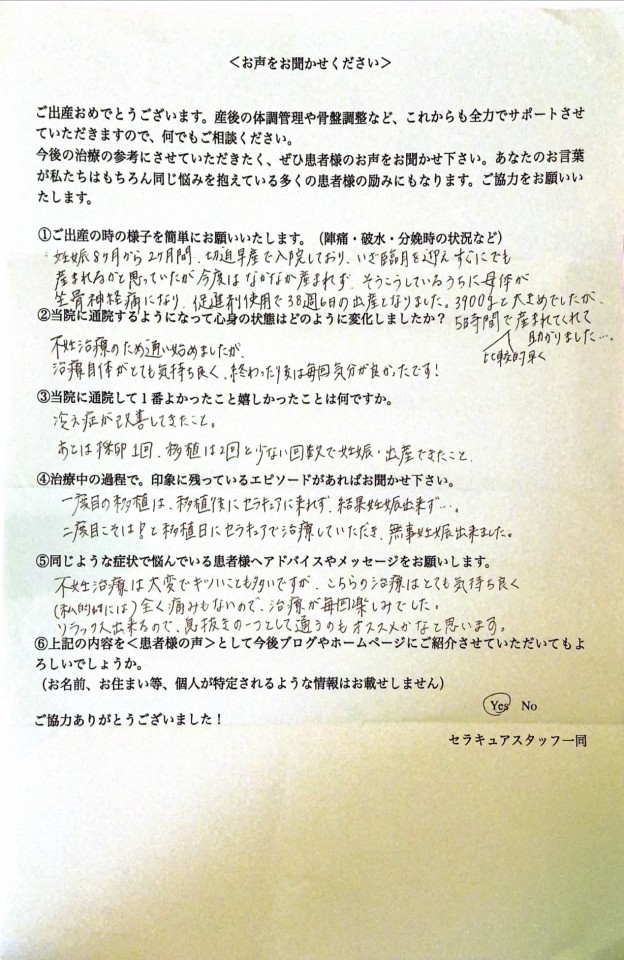 ＜お声をお聞かせください＞
ご出産おめでとうございます。産後の体調管理や骨盤調整など、これからも全力でサポートさせ
ていただきますので、何でもご相談ください。
今後の治療の参考にさせていただきたく、ぜひ患者様のお声をお聞かせ下さい。あなたのお言葉
が私たちはもちろん同じ悩みを抱えている多くの患者様の励みにもなります。ご協力をお願いい
たします。
①ご出産の時の様子を簡単にお願いいたします。（陣痛・破水・分娩時の状況など）
妊娠8ヶ月から2ヶ月間、切迫早産で入院しており、いざ臨月を迎えすぐにでも
産まれるかと思っていたが今度はなかなか産まれず、そうこうしているうちに母体が
坐骨神経痛になり、促進剤使用で38週6日の出産となりました。3900gと大きめでしたが、
5時間で産まれてくれて
助かりました…。
比較的早く
②当院に通院するようになって心身の状態はどのように変化しましたか？
不妊治療のため通い始めましたが、
治療自体がとても気持ち良く、終わった後は毎回気分が良かったです！
③当院に通院して１番よかったこと嬉しかったことは何ですか。
冷え症が改善してきたこと。
あとは採卵1回、移植は2回と少ない回数で妊娠・出産できたこと。
④治療中の過程で。印象に残っているエピソードがあればお聞かせ下さい。
一度目の移植は、移植後にセラキュアに来れず、結果妊娠出来ず…。
二度目こそは！と移植日にセラキュアで治療していただき、無事妊娠出来ました。
⑤同じような症状で悩んでいる患者様へアドバイスやメッセージをお願いします。
不妊治療は大変でキツいことも多いですが、こちらの治療はとても気持ち良く
(私的には)全く痛みもないので、治療が毎回楽しみでした。
リラックス出来るので、息抜きの一つとして通うのもオススメかなと思います。
⑥上記の内容を＜患者様の声＞として今後ブログやホームページにご紹介させていただいてもよ
ろしいでしょうか。
（お名前、お住まい等、個人が特定されるような情報はお載せしません）
Yes No
ご協力ありがとうございました！
セラキュアスタッフ一同